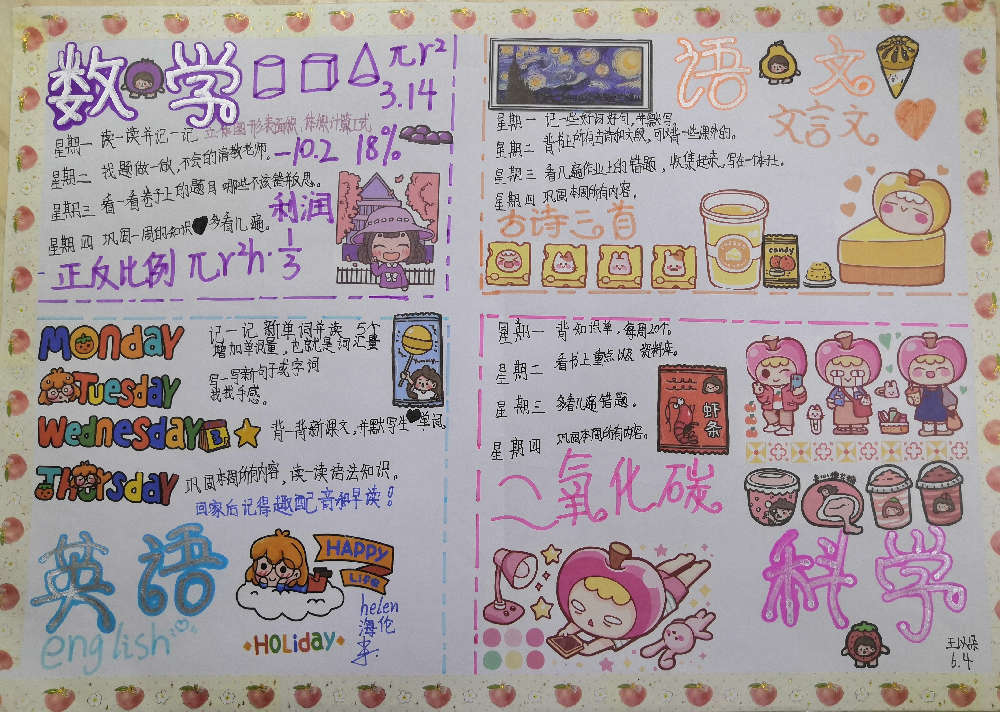 数学
πr²
3.14
星期一 读一读并记一记 立体图形表面积、体积计算公式
星期二 找题做一做,不会的请教老师。
-10.2 18%
星期三 看一看卷子上的题目哪些不该错,反思。
利润
星期四 巩固一周的知识多看几遍。
正反比例 πr²h·1/3
语文
文言文
星期一 记一些好词好句,并默写。
星期二 背书上所有古诗和文段,可以背一些课外的。
星期三 看几遍作业上的错题,收集起来,写在一体社。
星期四 巩固本周所有内容。
古诗三首
candy
Monday
记一记 新单词并读 5个
增加单词量,也就是词汇量
Tuesday
写一写新句子或字词
找找手感。
Wednesday
背一背新课文,并默写生单词
Thursday
巩固本周所有内容,读一读语法知识。
回家后记得趣配音和早读!
英语
english
HAPPY
LIFE
HOLiday
helen
海伦
星期一 背知识单,每周20个。
星期二 看书上重点以及资料库。
星期三 多看几遍错题。
星期四 巩固本周所有内容。
虾条
二氧化碳
科学
6.4